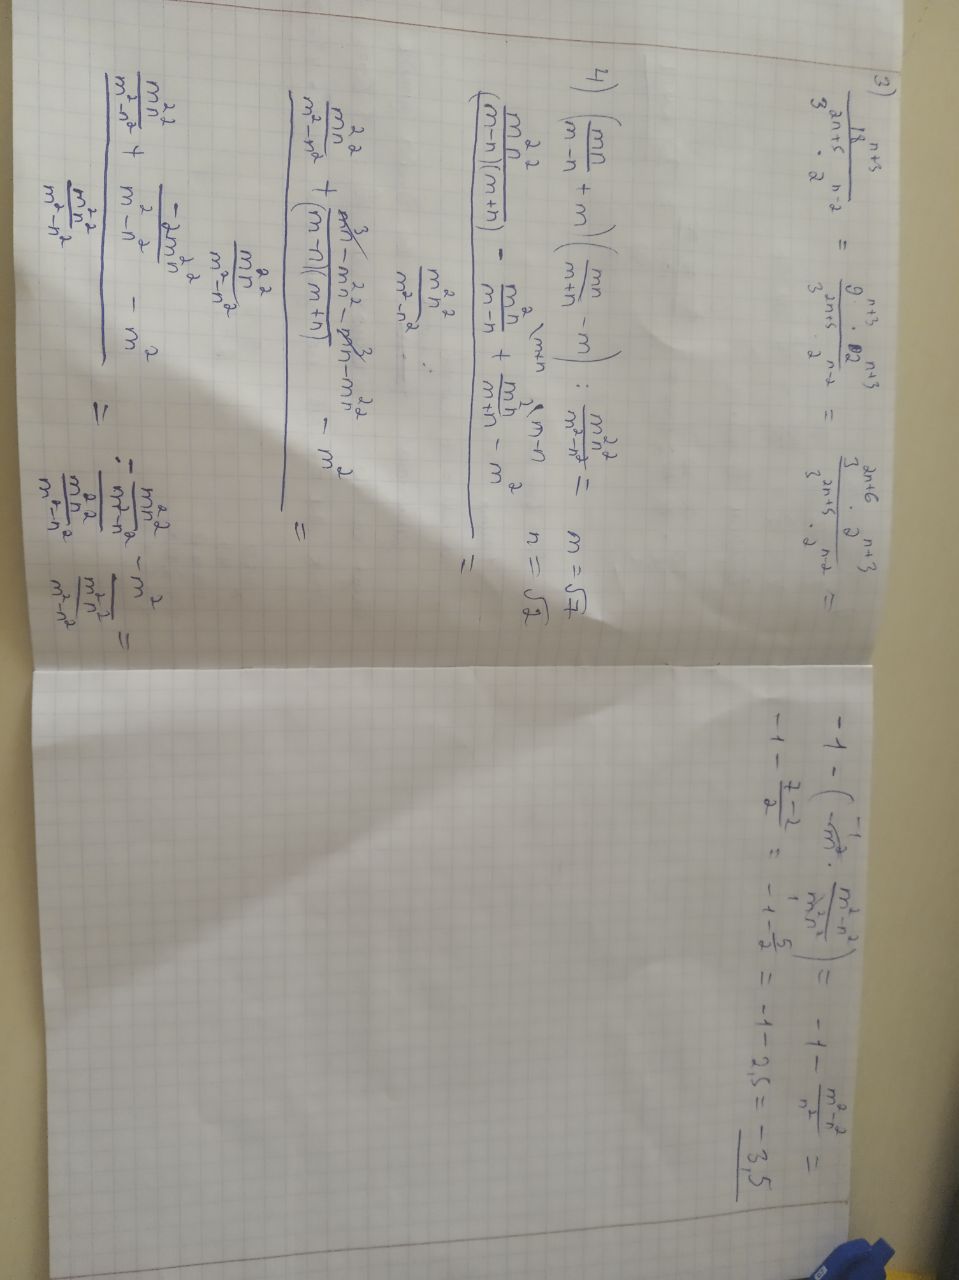 3) 18^(n+3) / (3^(2n+5) · 2^(n-2)) = 9^(n+3) · 2^(n+3) / (3^(2n+5) · 2^(n-2)) = 3^(2n+6) · 2^(n+3) / (3^(2n+5) · 2^(n-2)) =
4) (mn/(m-n) + m)(mn/(m+n) - m) : m²n²/(m²-n²) = m = √7
n = √2
(m²n²/((m-n)(m+n)) - m²n/(m-n) + m²n/(m+n) - m²) / (m²n²/(m²-n²)) =
(m²n²/(m²-n²) + (m³n - m²n² - m³n - m²n²)/((m-n)(m+n)) - m²) / (m²n²/(m²-n²)) =
(m²n²/(m²-n²) + -2m²n²/(m²-n²) - m²) / (m²n²/(m²-n²)) = (-m²n²/(m²-n²))/(m²n²/(m²-n²)) - m²/(m²n²/(m²-n²)) =
-1 - (-m² · (m²-n²)/(m²n²)) = -1 - (m²-n²)/n² =
-1 - (7-2)/2 = -1 - 5/2 = -1 - 2,5 = -3,5